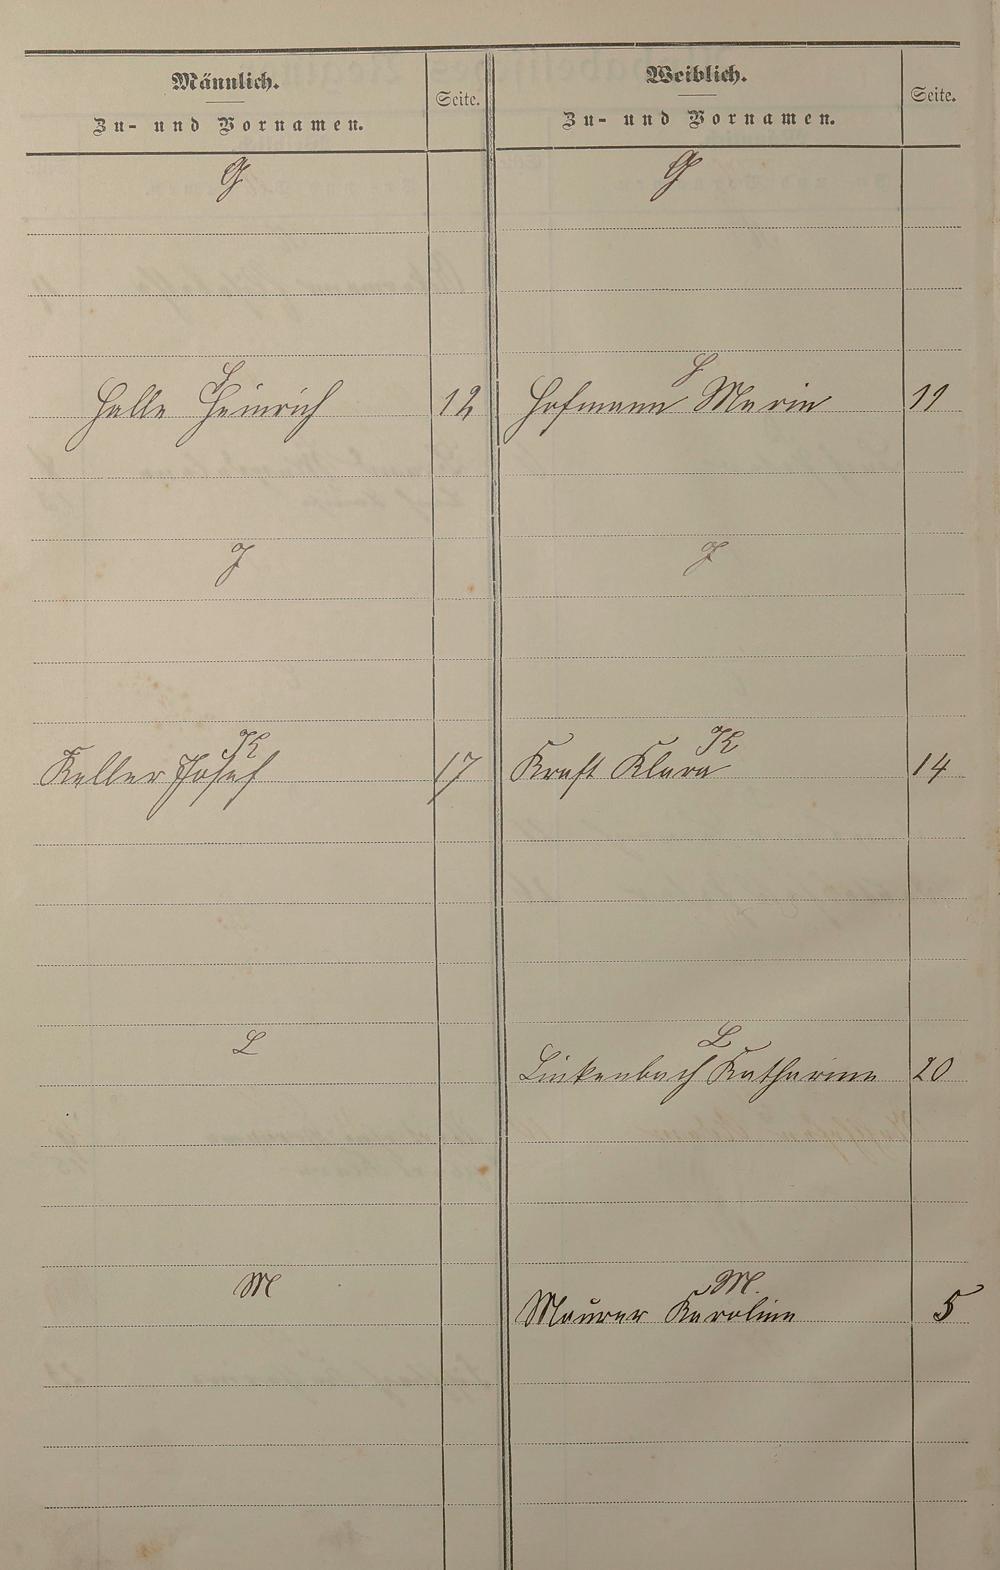 Männlich.
Zu- und Vornamen.
Seite.
Weiblich.
Zu- und Vornamen.
Seite.
G
G
H
H
Halle Heinrich 12
Hofmann Marie 11
J
J
K
K
Keller Josef 17
Kraft Klara 14
L
L
Linkenbach Katharina 20
M
M.
Maurer Karoline 5